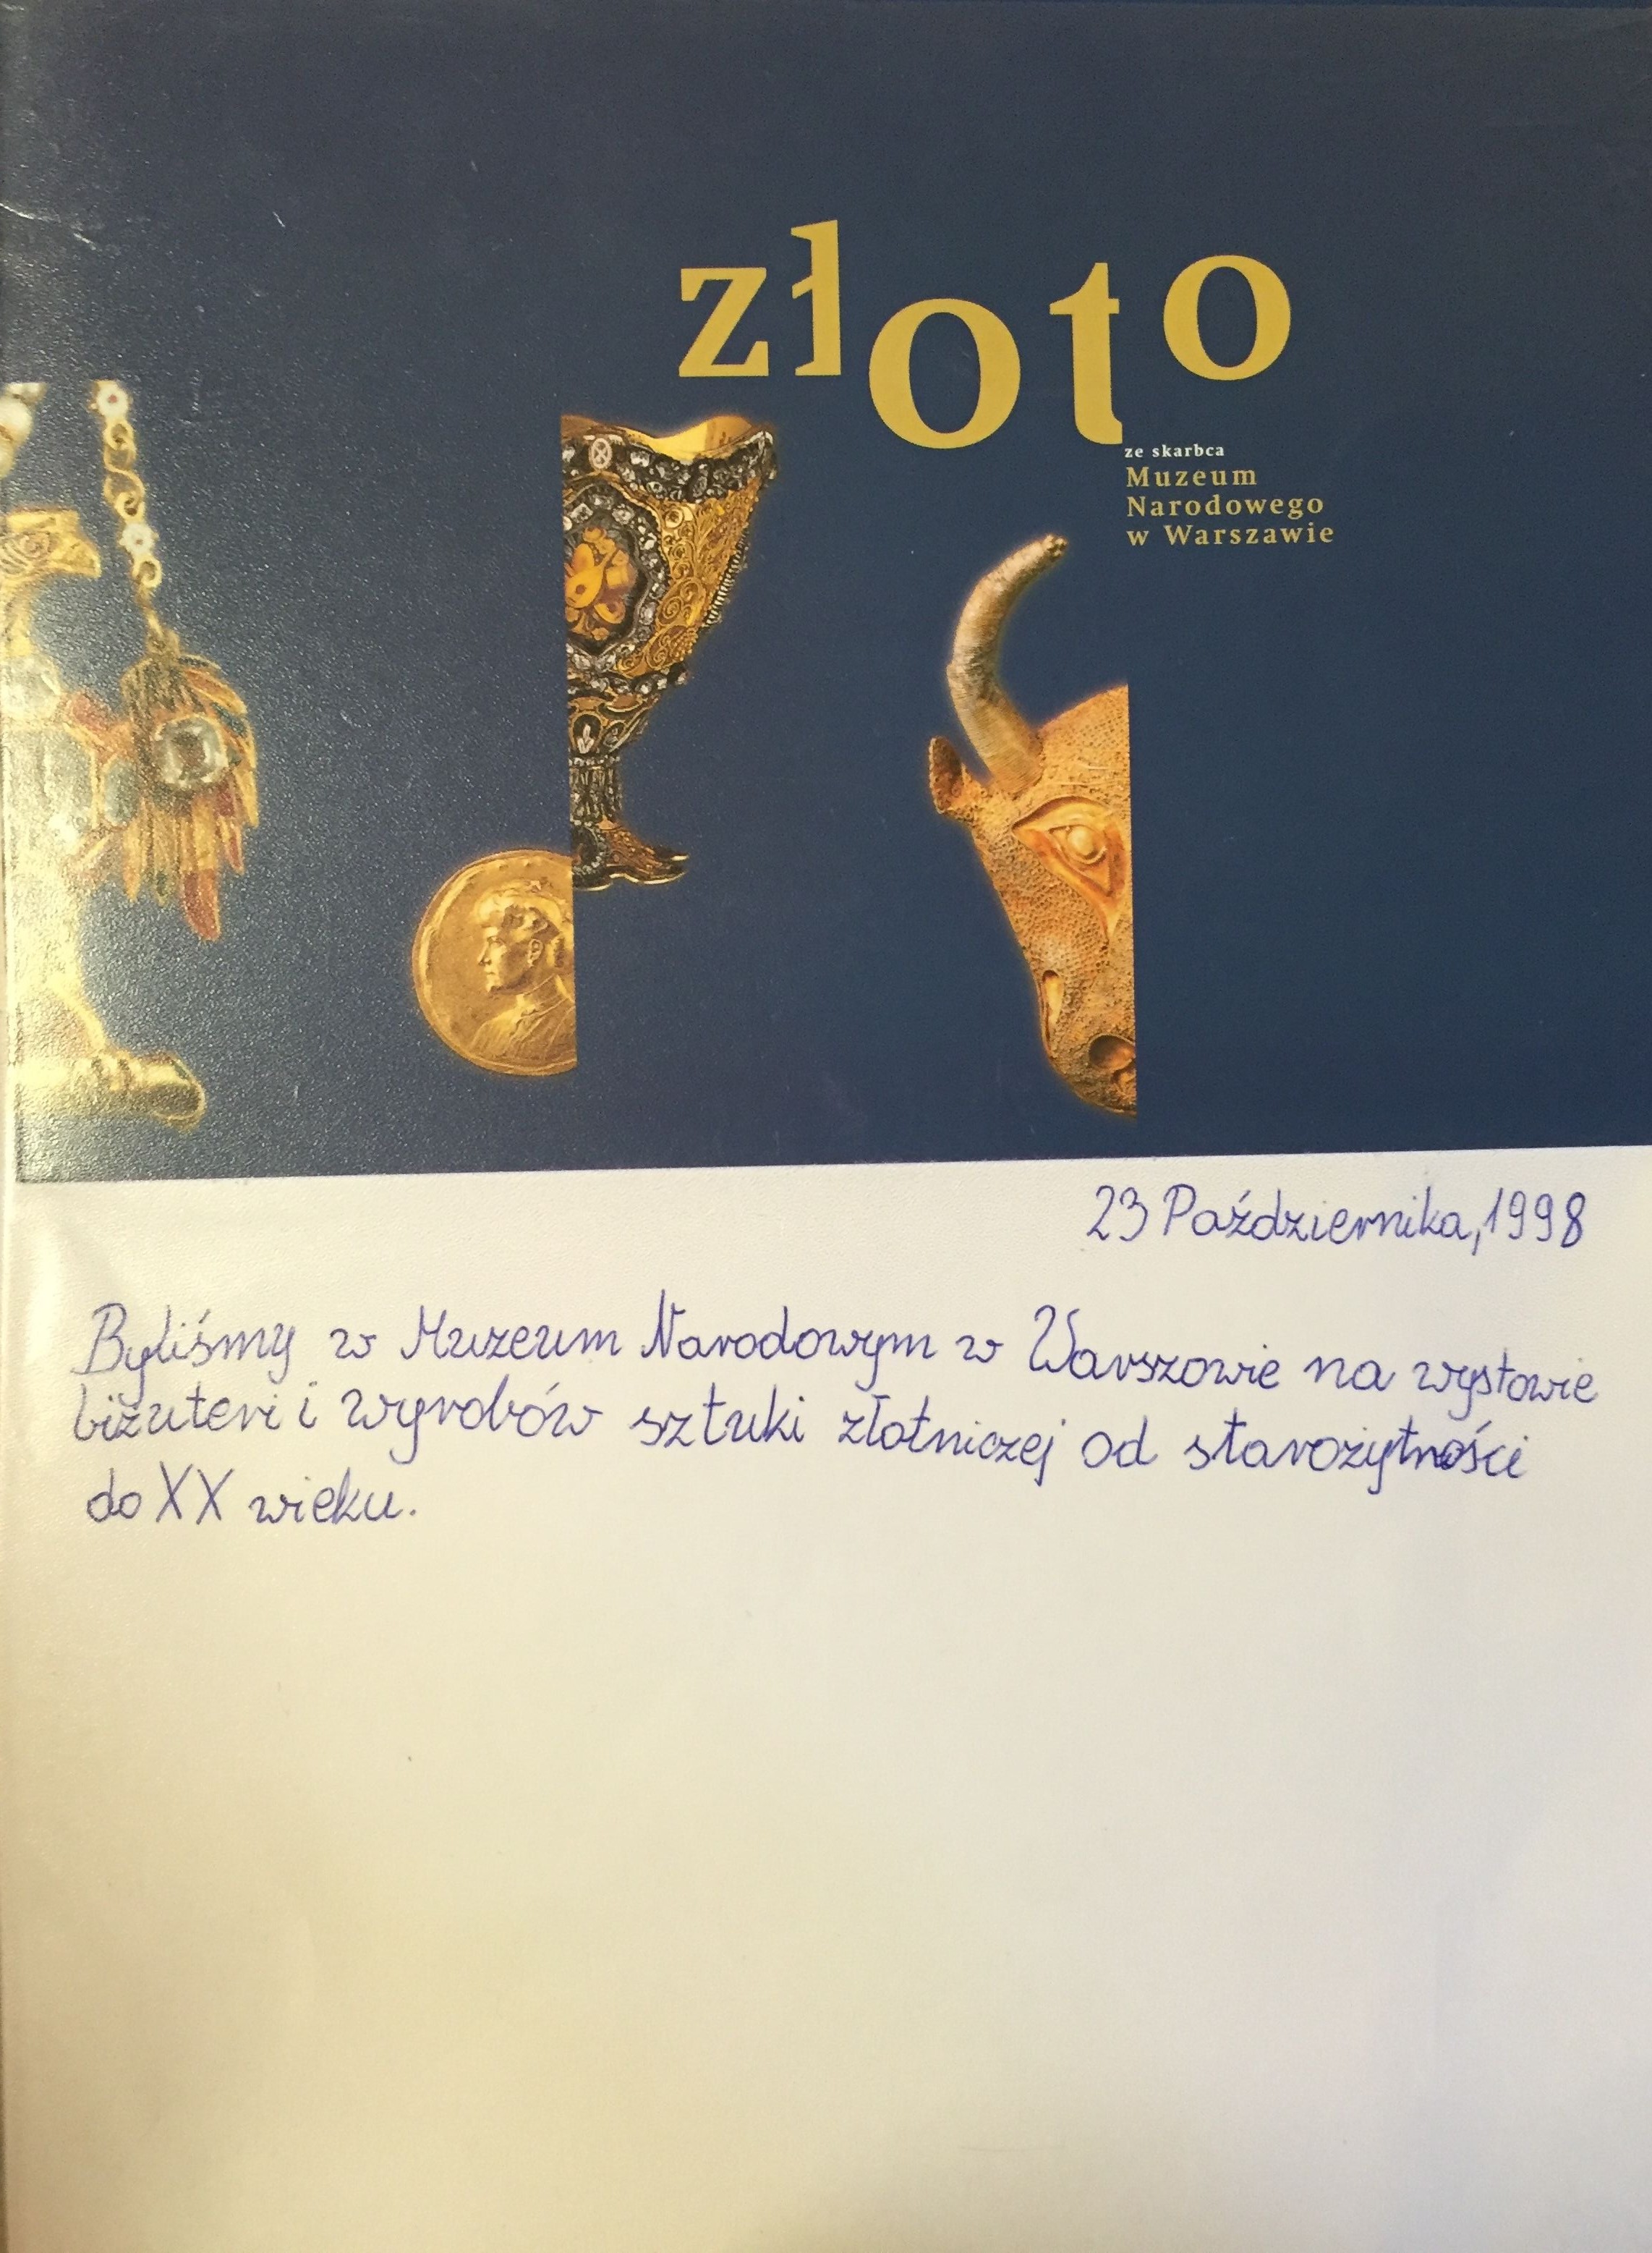 złoto
ze skarbca
Muzeum
Narodowego
w Warszawie
23 Października, 1998
Byliśmy w Muzeum Narodowym w Warszawie na wystawie
biżuteri i wyrobów sztuki złotniczej od starożytności
do XX wieku.